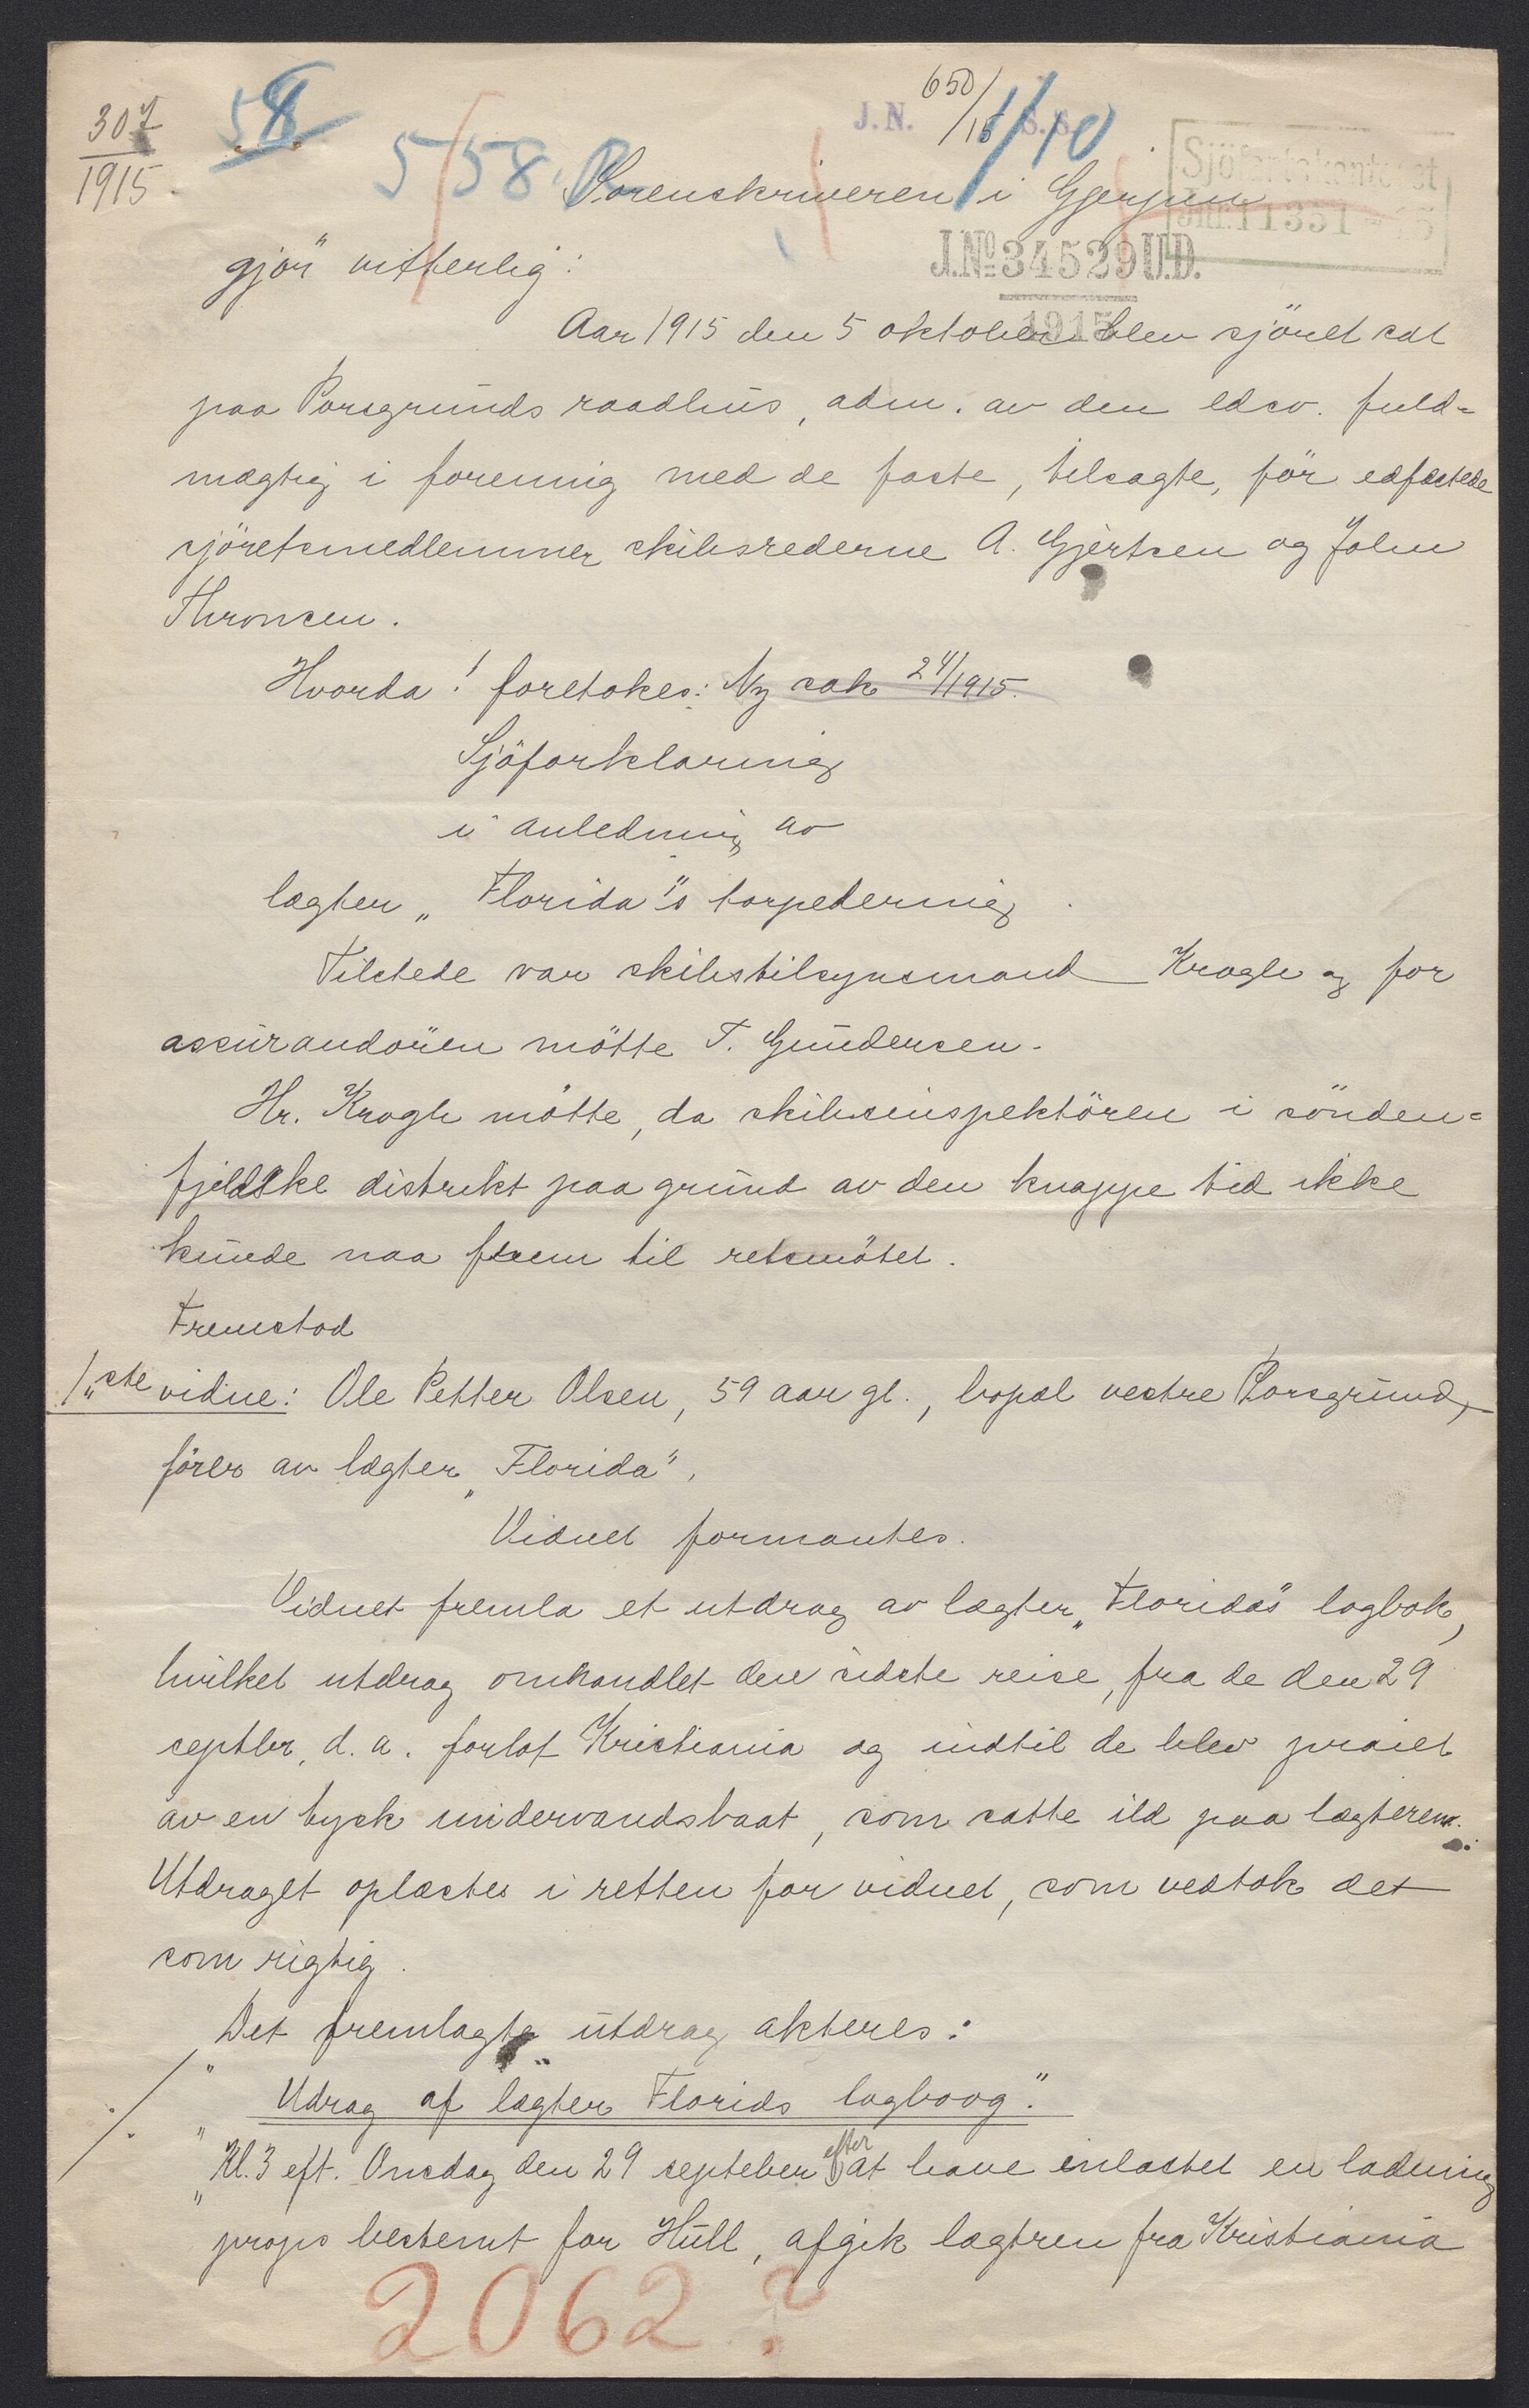 307
1915.
58
5/58.
J.N. 650/15 S.S.
1/10
Sjöfartskontoret
Jnr. 11351 - 15
Sorenskriveren i Gjerpen
gjör vitterlig:
J.No 34529 U.D.
1915
Aar 1915 den 5 oktober blev sjöret sat
paa Porsgrunds raadhus, adm. av den edsv. fuld-
mægtig i forening med de faste, tilsagte, før edfæstede
sjöretsmedlemmer skibsrederne A. Gjertsen og John
Thronsen.
Hvorda! foretokes: Ny sak 24/1915.
Sjöforklaring
i anledning av
lægter „Florida"s torpedering.
Tilstede var skibstilsynsmand Krogh og for
assurandören mötte T. Gundersen.
Hr. Krogh mötte, da skibsinspektören i sönden-
fjeldske distrikt paa grund av den knappe tid ikke
kunde naa frem til retsmötet.
Fremstod
1ste vidne: Ole Petter Olsen, 59 aar gl., bopæl vestre Porsgrund,
förer av lægter „Florida",
Vidnet formantes.
Vidnet fremla et utdrag av lægter „Floridas" logbok,
hvilket utdrag omhandlet den sidste reise, fra de den 29
septbr, d. a. forlot Kristiania og indtil de blev praiet
av en tysk undervandsbaat, som satte ild paa lægteren.
Utdraget oplæstes i retten for vidnet, som vedtok det
som rigtig.
Det fremlagte utdrag akteres:
./. " Udrag af lægter Florids logboog."
" Kl. 3 eft. Onsdag den 29 septeber efter at have inlastet en ladning
" props bestemt for Hull, afgik lægtren fra Kristiania
2062 ?